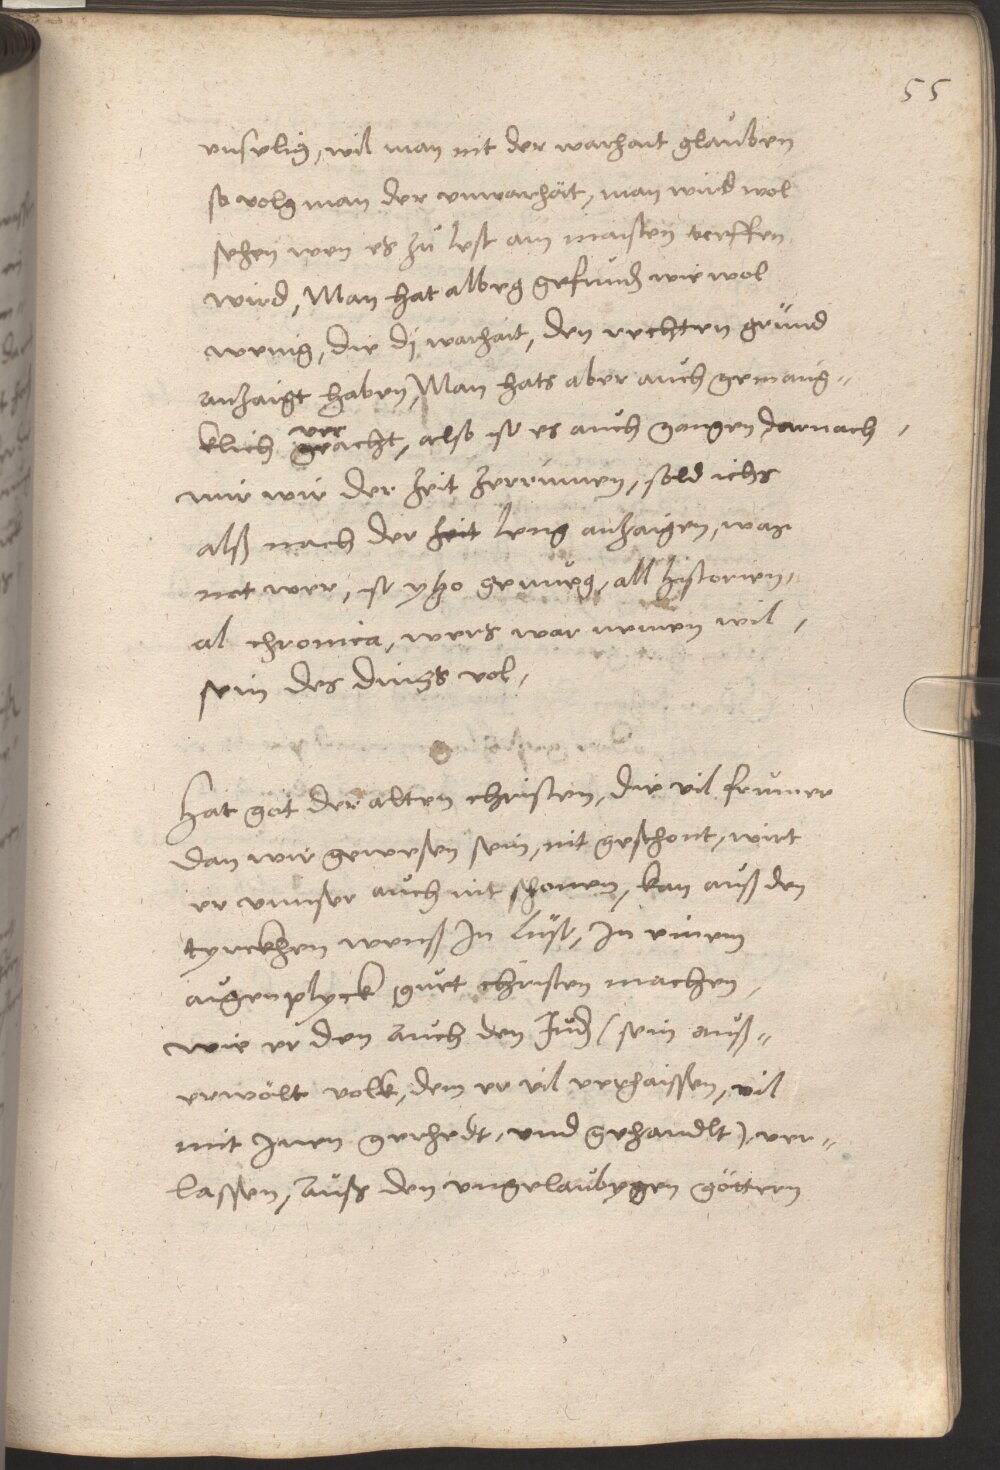 55
unselig, wil man nit der warhait glauben
so volg man der unwarhait, man wird wol
sehen wen es zu lest am maisten treffen
wird, Man hat albeg gefunden wie wol
wenig, die di warhait, den rechten grund
anzaigt haben, Man hats aber auch gemaing-
klich veracht, also ist es auch gangen, darnach,
mir wir der zeit zerrinnen, sold ichs
alß nach der zeit leng anzaigen, was
not wer, ist yzo genueg, all historien,
al chronica, wers war nemen wil,
sein des dings vol,
Hat got der alten christen, die vil frumer
dan wir gewesen sein, nit geschont, wirt
er unnser auch nit schonen, kan auß den
tyrckhen wenß In lust, In einem
augenplyck guet christen machen,
wie er den auch den Juden (sein auß-
erwölt volk, dem er vil verhaissen, vil
mit Inen gerhedt, und gehandlt) ver-
lassen, Auß den ungelaubygen göttern